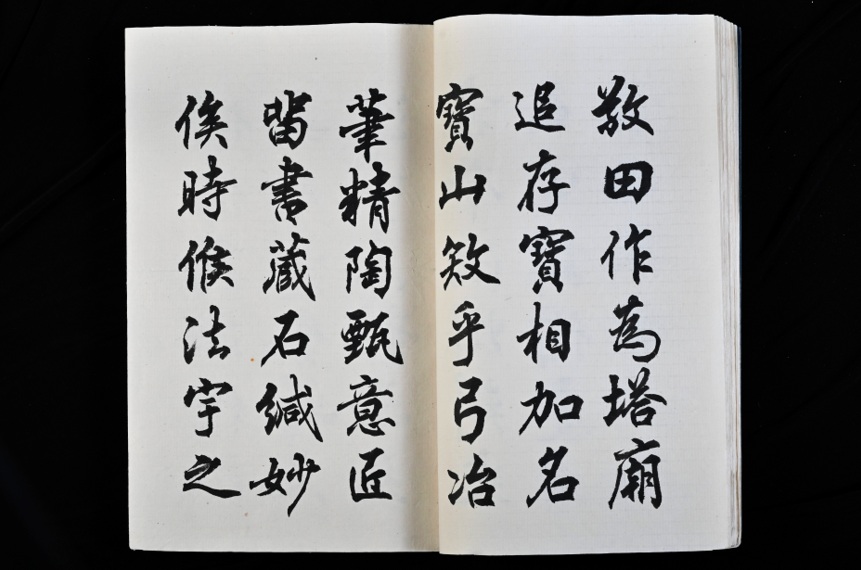 敬田作為塔廟
追存寶相加名
寶山矧乎弓冶
筆精陶甄意匠
留書藏石緘妙
俟時候法宇之